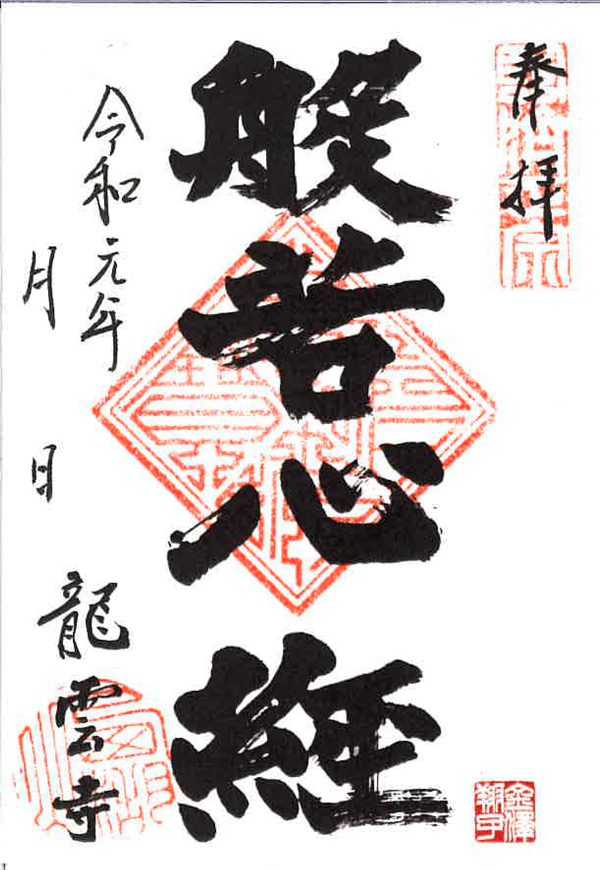 奉拝
般若心経
令和元年
月 日
龍雲寺
金澤翔子